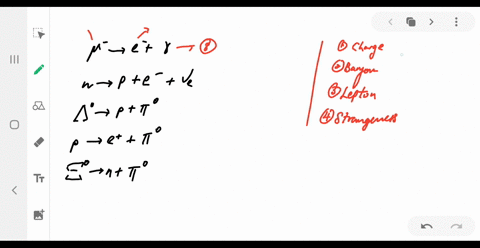 μ⁻ → e⁻ + γ → ⑧
n → p + e⁻ + νe
Δ⁰ → p + π⁰
p → e⁺ + π⁰
Ξ⁰ → n + π⁰
① Charge
② Baryon
③ Lepton
④ Strangeness
Tт